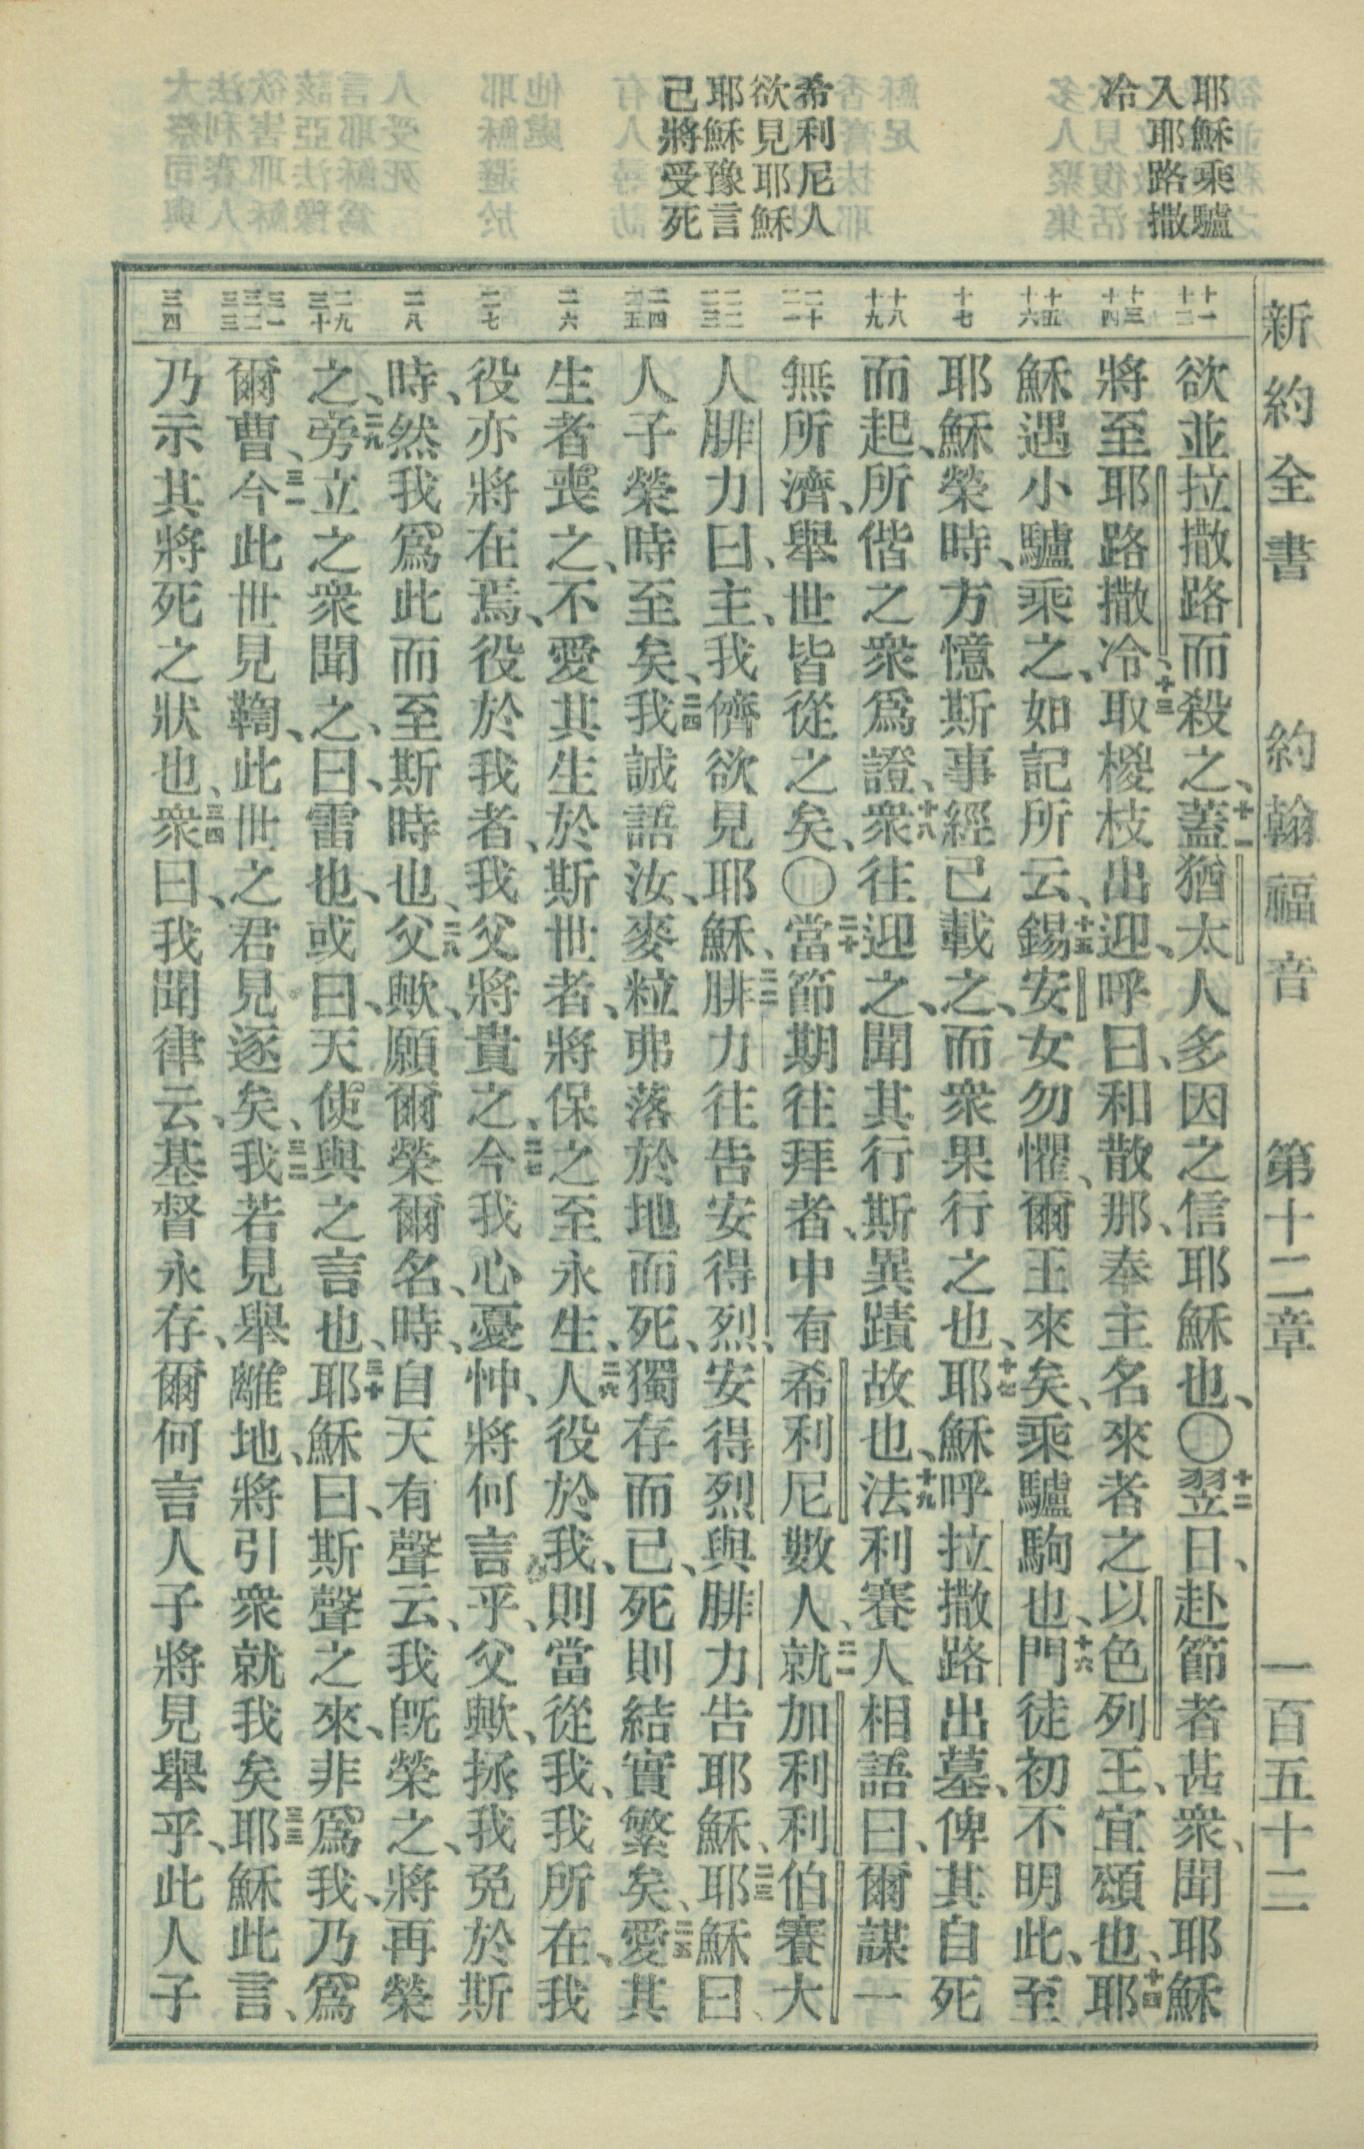 耶穌乘驢
入耶路撒
冷
希利尼人
欲見耶穌
耶穌豫言
己將受死
新約全書 約翰福音 第十二章 一百五十二
十一 十二
十三 十四
十五 十六
十七
十八 十九
二十 二一
二二 二三
二四 二五
二六
二七
二八
二九 三十
三一 三二 三三
三四
欲並拉撒路而殺之、十一蓋猶太人多因之信耶穌也、〇十二翌日、赴節者甚衆、聞耶穌
將至耶路撒冷、十三取椶枝出迎、呼曰、和散那、奉主名來者之以色列王、宜頌也、十四耶
穌遇小驢乘之、如記所云、十五錫安女勿懼、爾王來矣、乘驢駒也、十六門徒初不明此、至
耶穌榮時、方憶斯事經已載之、而衆果行之也、十七耶穌呼拉撒路出墓、俾其自死
而起、所偕之衆爲證、十八衆往迎之、聞其行斯異蹟故也、十九法利賽人相語曰、爾謀一
無所濟、舉世皆從之矣、〇二十當節期往拜者、中有希利尼數人、二一就加利利伯賽大
人腓力曰、主、我儕欲見耶穌、二二腓力往告安得烈、安得烈與腓力告耶穌、二三耶穌曰、
人子榮時至矣、二四我誠語汝、麥粒弗落於地而死、獨存而已、死則結實繁矣、二五愛其
生者喪之、不愛其生於斯世者、將保之至永生、二六人役於我、則當從我、我所在、我
役亦將在焉、役於我者、我父將貴之、二七今我心憂忡、將何言乎、父歟、拯我免於斯
時、然我爲此而至斯時也、二八父歟、願爾榮爾名、時、自天有聲云、我旣榮之、將再榮
之、二九旁立之衆聞之、曰、雷也、或曰、天使與之言也、三十耶穌曰、斯聲之來、非爲我、乃爲
爾曹、三一今此世見鞫、此世之君見逐矣、三二我若見舉離地、將引衆就我矣、三三耶穌此言、
乃示其將死之狀也、三四衆曰、我聞律云、基督永存、爾何言人子將見舉乎、此人子